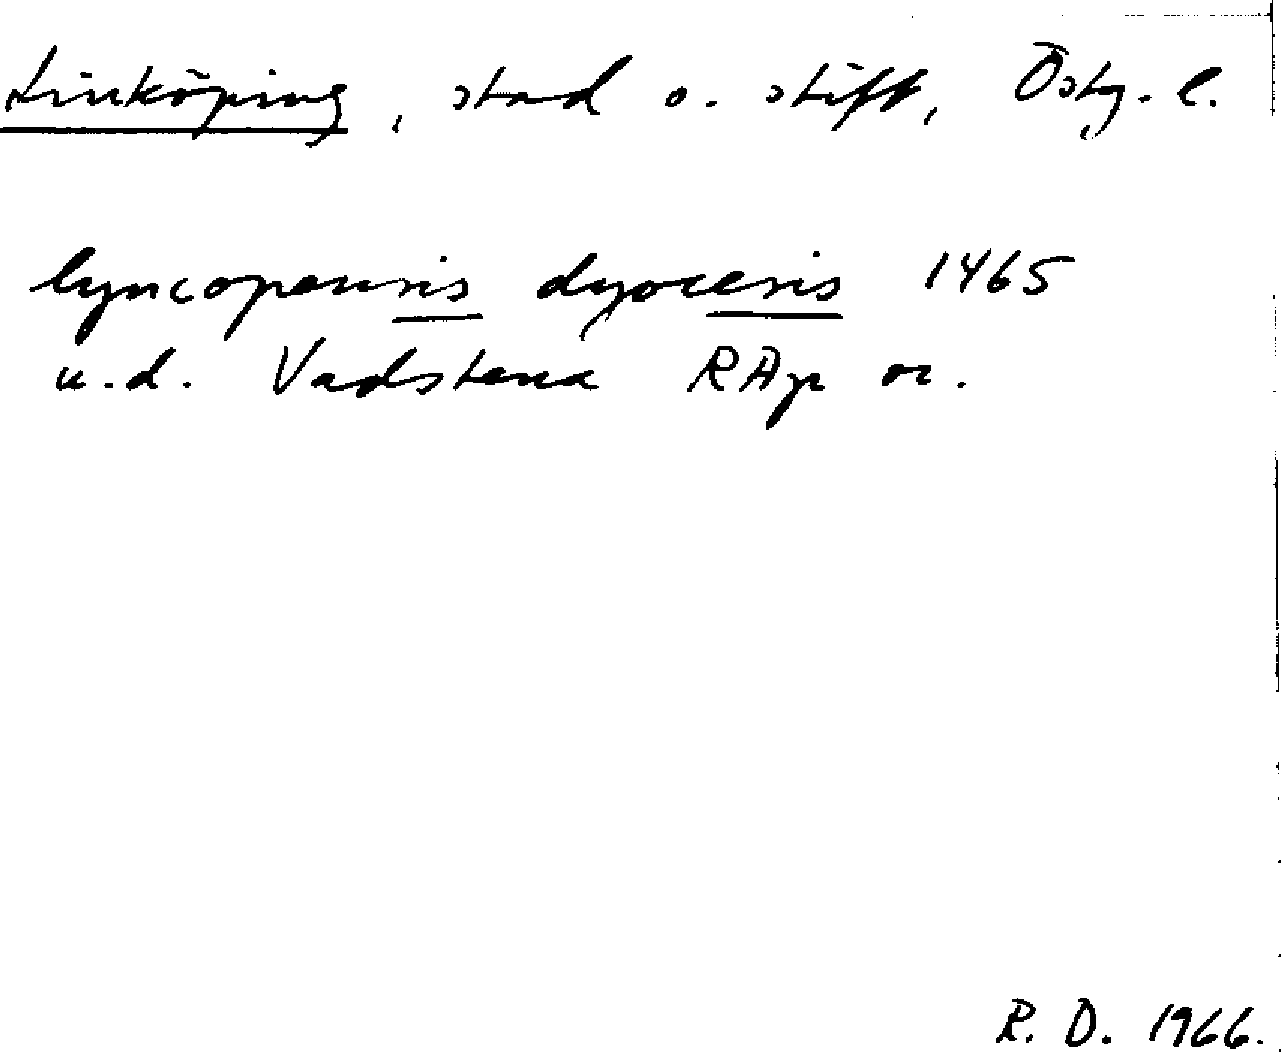 Linköping, stad o. stift, Östg. l.
lyncopensis dyocesis 1465
u.d. Vadstena RAp or.
R. D. 1966.